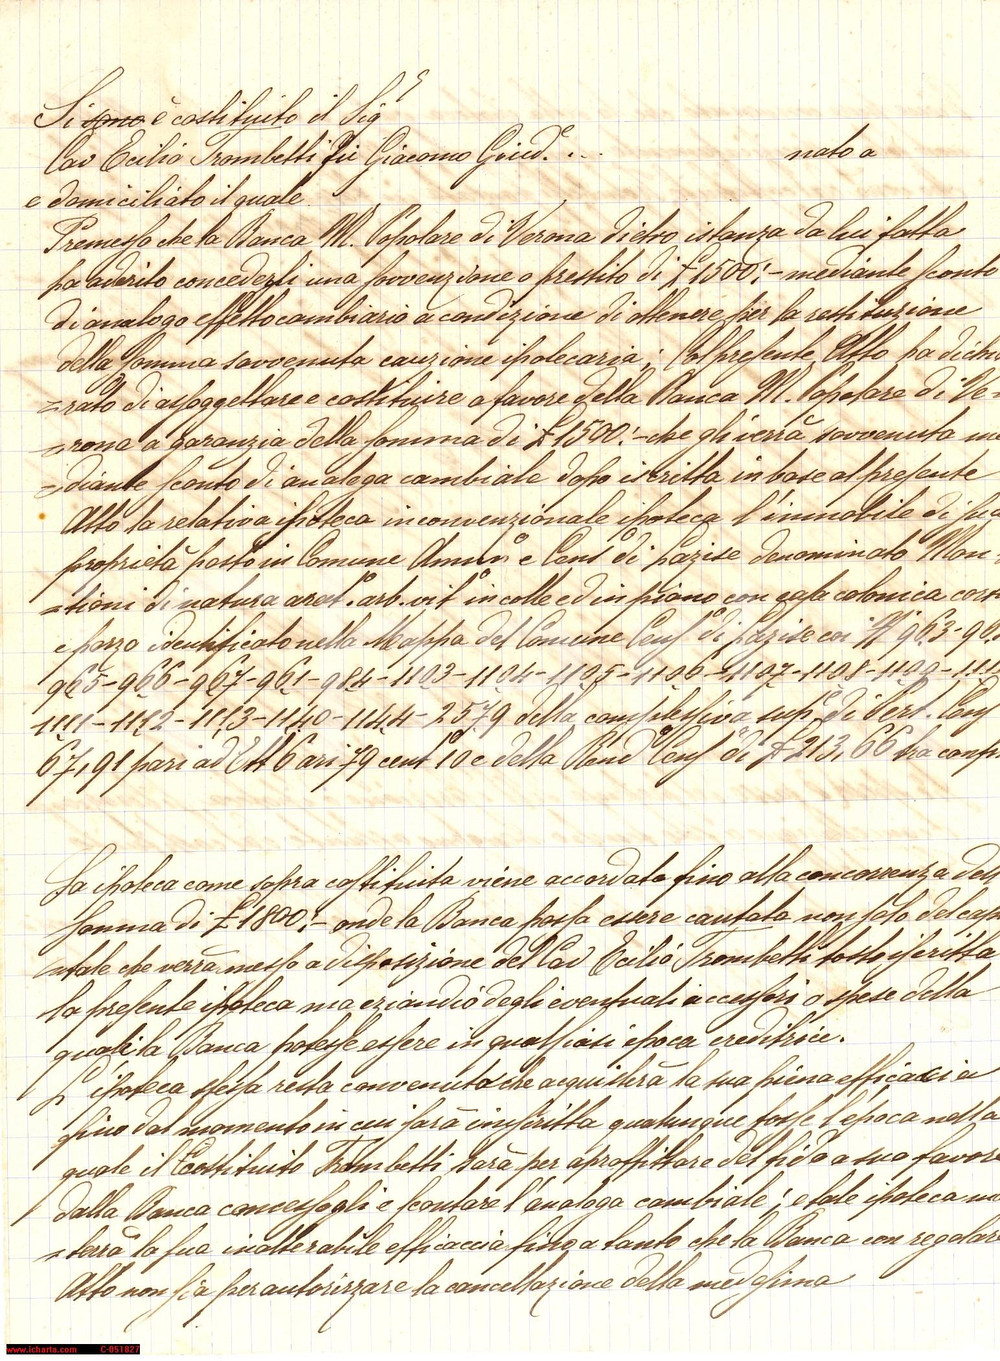 Si sono è costituito il Sigr
Cav Ecilio Trombetti fu Giacomo Gined.e ... nato a
e domiciliato il quale
Premesso che la Banca M. Popolare di Verona dietro istanza da lui fatta
ha aderito concedergli una sovvenzione o prestito di £ 1500:- mediante sconto
di analogo effetto cambiario a condizione di ottenere per la restituzione
della somma sovvenuta cauzione ipotecaria; Col presente Atto ha dichia
=rato di assoggettare e costituire a favore della Banca M. Popolare di Ve-
=rona a garanzia della somma di £ 1500:- che gli verrà sovvenuta me
=diante sconto di analoga cambiale dopo iscritta in base al presente
Atto la relativa ipoteca in convenzionale ipoteca l'immobile di sua
proprietà posto in Comune Ammvo e Censo di Lazise denominato Mon-
=tioni di natura arato. arb. vito in colle ed in piano con casa colonica corte
e pozzo identificato nella Mappa del Comune Censo di Lazise coi N 963-96
965-966-967-961-984-1103-1104-1105-1106-1107-1108-1109-111
1111-1112-1113-1140-1144-2579 della complessiva supe di Pert. Cens
67,91 pari ad Ett 6 ari 79 cent 10 e della Rendo Censo di £ 213,66 tra confi
La ipoteca come sopra costituita viene accordata fino alla concorrenza dell
somma di £ 1800:- onde la Banca possa essere cautata non solo del capi
=tale che verrà messo a disposizione del Cav Ecilio Trombetti tosto iscritta
la presente ipoteca ma eziandio degli eventuali accessori o spese della
quale la Banca potesse essere in qualsiasi epoca creditrice.
L' ipoteca stessa resta convenuto che acquisterà la sua piena efficacia
fino dal momento in cui sarà inscritta qualunque fosse l'epoca nella
quale il Costituito Trombetti sarà per approfittare del fido a suo favore
dalla Banca concessogli e scontare l'analoga cambiale; e tale ipoteca man
=terrà la sua inalterabile efficaccia fino a tanto che la Banca con regolare
Atto non sia per autorizzare la cancellazione della medesima
www.icharta.com C-051827